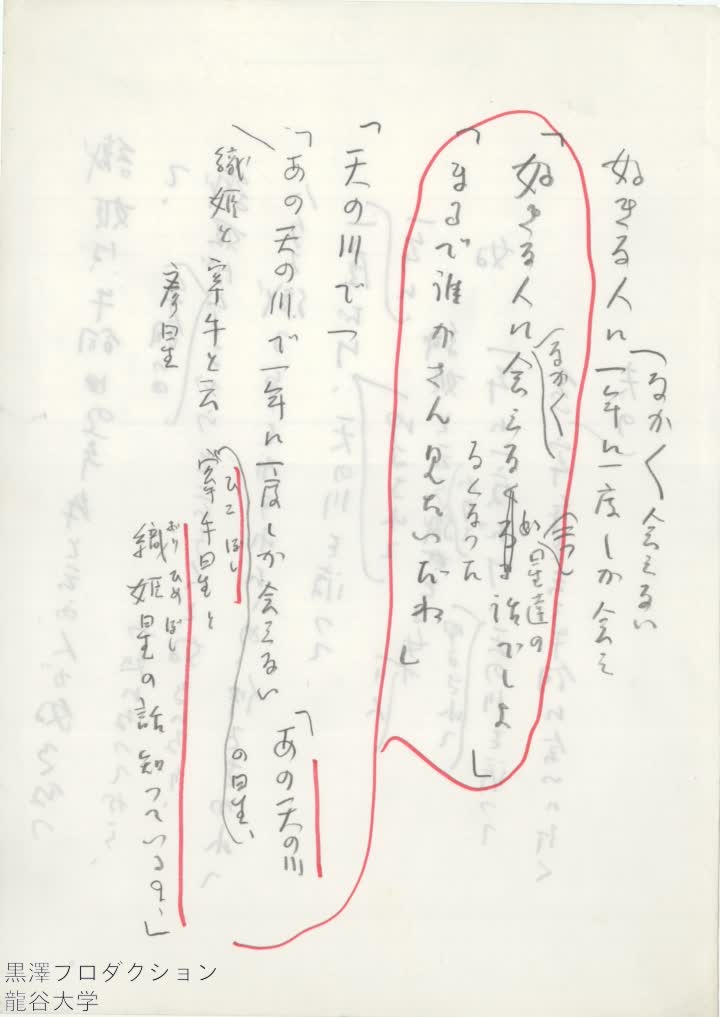 なかく会えない
好きな人に一年に一度しか会え
「好きな人に会えなくなった星達の話でしよ」
なかく
「まるで誰かさん見たいだね」
「天の川で一
「あの天の川で一年に一度しか会えない
「あの天の川
織姫と牽牛と云
の星、
彦星
牽牛星と
ひこぼし
織姫星の話知っている？」
おりひめぼし
黒澤プロダクション
龍谷大学